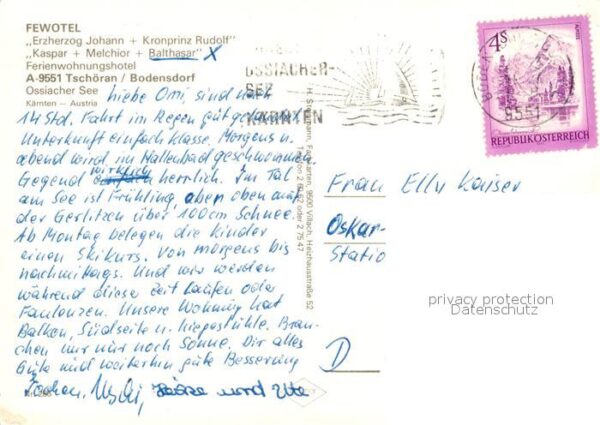 FEWOTEL
„Erzherzog Johann + Kronprinz Rudolf"
„Kaspar + Melchior + Balthasar" X
Ferienwohnungshotel
A-9551 Tschöran / Bodensdorf
Ossiacher See
Kärnten – Austria
liebe Omi, sind nach
14 Std. Fahrt im Regen gut gelandet.
Unterkunft einfach Klasse. Morgens u.
abend wird im Hallenbad geschwommen.
Gegend wirklich herrlich. Im Tal
am See ist Frühling, aber oben auf
der Gerlitzen über 100cm Schnee.
Ab Montag belegen die Kinder
einen Skikurs. Von morgens bis
nachmittags. Und wir werden
während dieser Zeit laufen oder
faulenzen. Unsere Wohnung hat
Balkon, Südseite u. Liegestühle. Brau-
chen wir nur noch Sonne. Dir alles
Gute und weiterhin gute Besserung
Jochen, Uschi, und Ute
OSSIACHER-
SEE
KÄRNTEN
9551
4 S
REPUBLIK ÖSTERREICH
Frau Elly Kaiser
Oskar-
Statio
D
privacy protection
Datenschutz